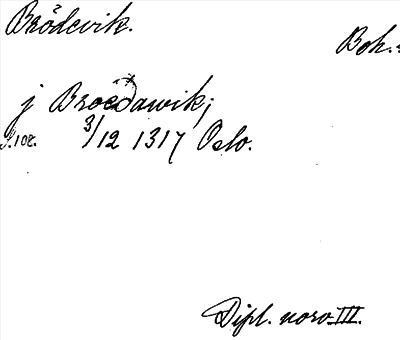 Brödevik.
Boh.
j Broeðawik;
s. 108.
3/12 1317 Oslo.
Dipl. norv. III.